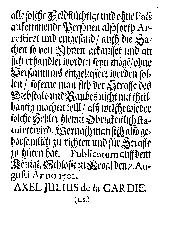 alle solche Feldflüchtige und ohne Paß
ankommende Personen alsofort Ar-
restiret und eingesand / auch die Sa-
chen so von Ihnen gekauffet und an
sich erhandelt worden seyn möge / ohne
Versäumnis eingeliefert werden sol-
len / soferne man sich der Straffe des
Diebstals und Raubes nicht mit theil-
hafftig machen will / als welche wieder
solche Hehler hierin Obrigkeitlich sta-
tuiret wird. Wornach man sich also ge-
horsamlich zu richten und für Straffe
zu hüten hat. Publicatum auff dem
Königl. Schloß zu Reval den 7. Au-
gusti Anno 1702.
AXEL JULIUS de la GARDIE.
(L.S.)